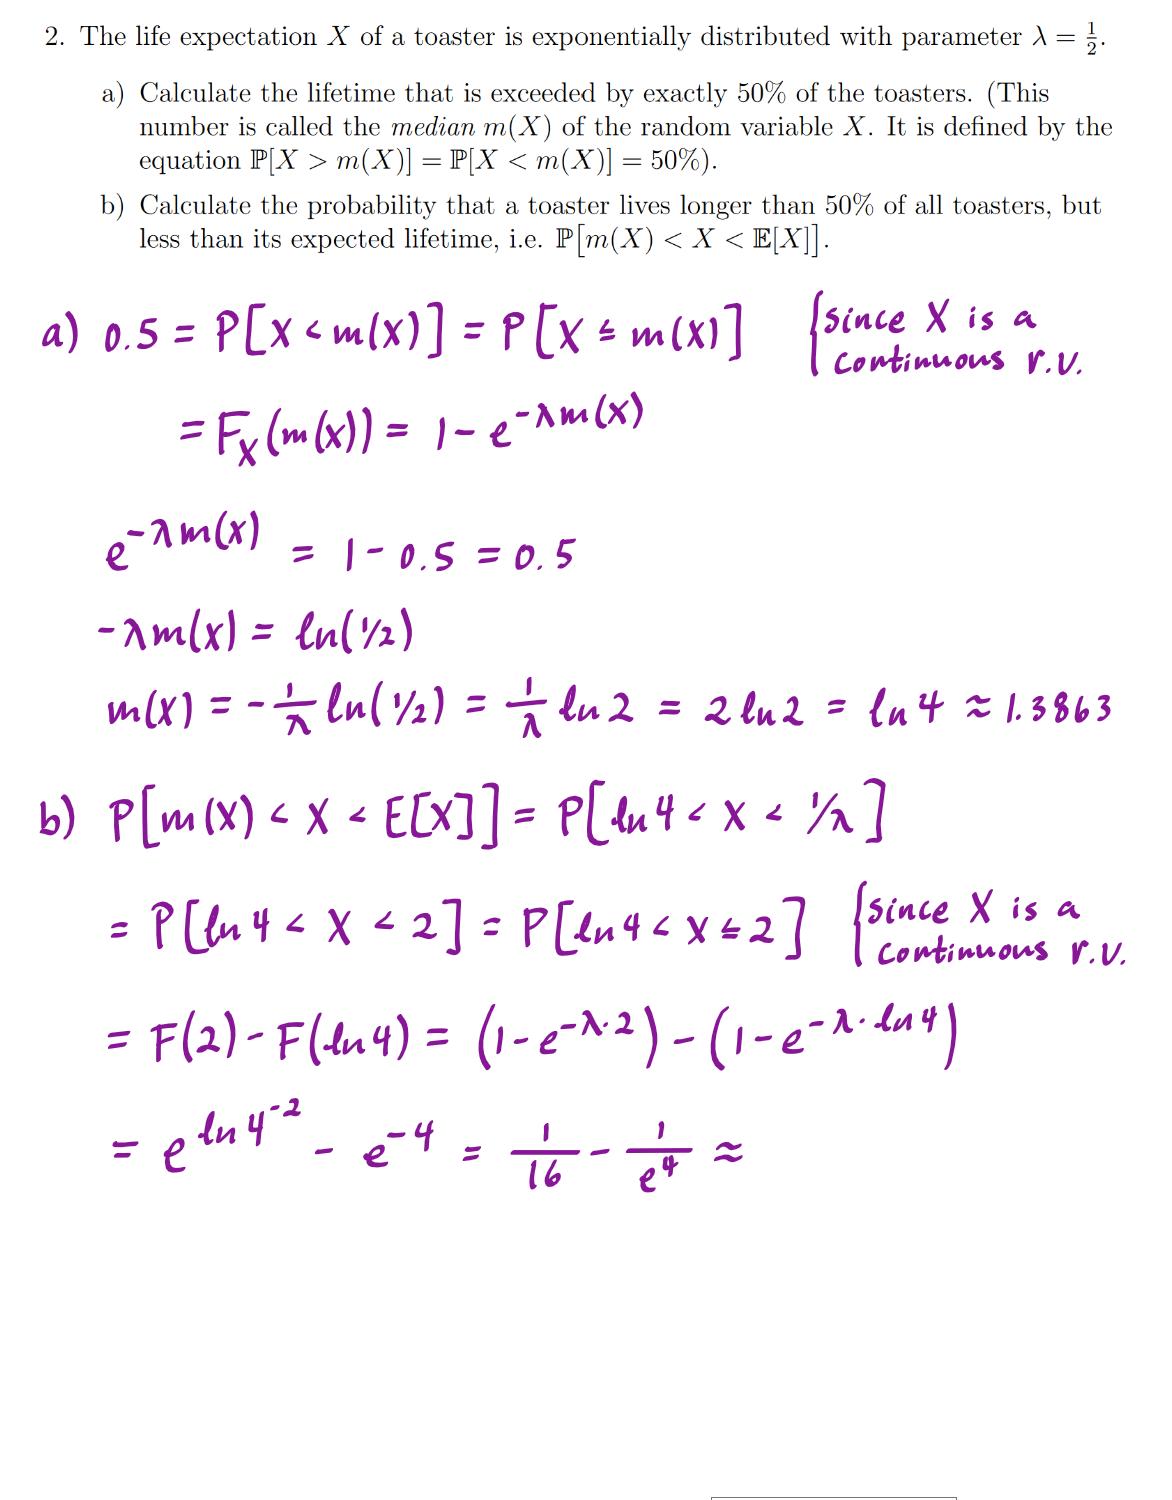 2. The life expectation X of a toaster is exponentially distributed with parameter λ = 1/2.
a) Calculate the lifetime that is exceeded by exactly 50% of the toasters. (This
number is called the median m(X) of the random variable X. It is defined by the
equation ℙ[X > m(X)] = ℙ[X < m(X)] = 50%).
b) Calculate the probability that a toaster lives longer than 50% of all toasters, but
less than its expected lifetime, i.e. ℙ[m(X) < X < 𝔼[X]].
a) 0.5 = P[X < m(X)] = P[X ≤ m(X)] { since X is a
continuous r.v.
= F_X(m(X)) = 1 - e^{-λm(X)}
e^{-λm(X)} = 1 - 0.5 = 0.5
-λm(X) = ln(1/2)
m(X) = -1/λ ln(1/2) = 1/λ ln 2 = 2 ln 2 = ln 4 ≈ 1.3863
b) P[m(X) < X < E[X]] = P[ln 4 < X < 1/λ]
= P[ln 4 < X < 2] = P[ln 4 < X ≤ 2] { since X is a
continuous r.v.
= F(2) - F(ln 4) = (1 - e^{-λ·2}) - (1 - e^{-λ·ln 4})
= e^{ln 4^{-2}} - e^{-4} = 1/16 - 1/e^4 ≈